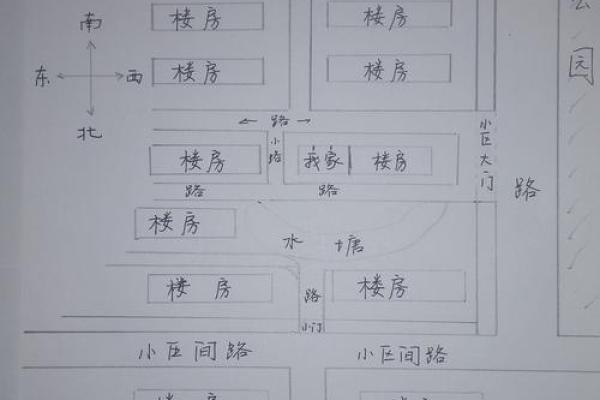 南
东 西
北
楼房 楼房
楼房 楼房
公园
← 路 →
小路
小区大门
楼房 我家 楼房
路 路
路
楼房
水塘
楼房 路 楼房
小门
小区间路 小区间路
楼房